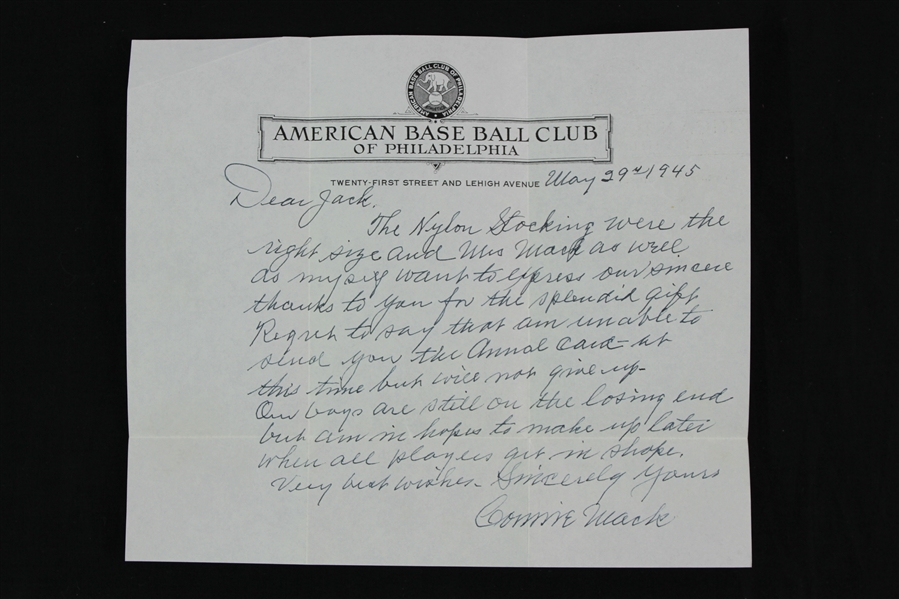 AMERICAN BASE BALL CLUB OF PHILADELPHIA
AMERICAN BASE BALL CLUB
OF PHILADELPHIA
TWENTY-FIRST STREET AND LEHIGH AVENUE May 29th 1945
Dear Jack.
The Nylon Stocking were the
right size and Mrs Mack as well
as myself want to express our sincere
thanks to you for the splendid gift
Regret to say that am unable to
send you the Annal Card - at
this time but will not give up -
Our boys are still on the losing end
but am in hopes to make up later
when all players get in shape.
Very best wishes - Sincerely Yours
Connie Mack